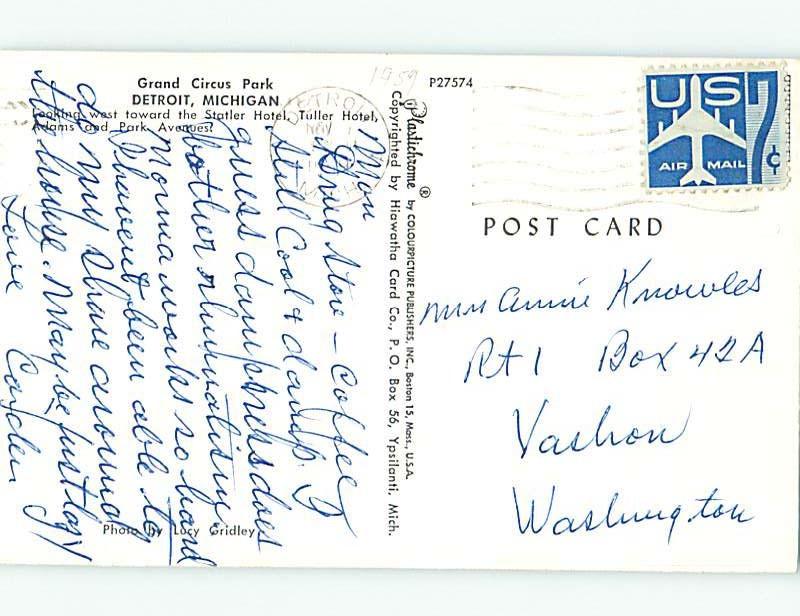 1959
Grand Circus Park
DETROIT, MICHIGAN
Looking west toward the Statler Hotel, Tuller Hotel,
Adams and Park Avenues.
P27574
Plastichrome ® by COLOURPICTURE PUBLISHERS, INC., Boston 15, Mass., U.S.A.
Copyrighted by Hiawatha Card Co., P. O. Box 56, Ypsilanti, Mich.
DETROIT
NOV
MICH
US 7¢
AIR MAIL
POST CARD
Mrs Annie Knowles
Rt 1 Box 42A
Vashon
Washington
Mon
Drug Store – Coffee
Still Cool & damp. I
guess dampness does
bother rhumatism
Norma works so hard
I havent been able to
do my share around
the house. Maybe just lazy
Love
Photo by Lucy Gridley